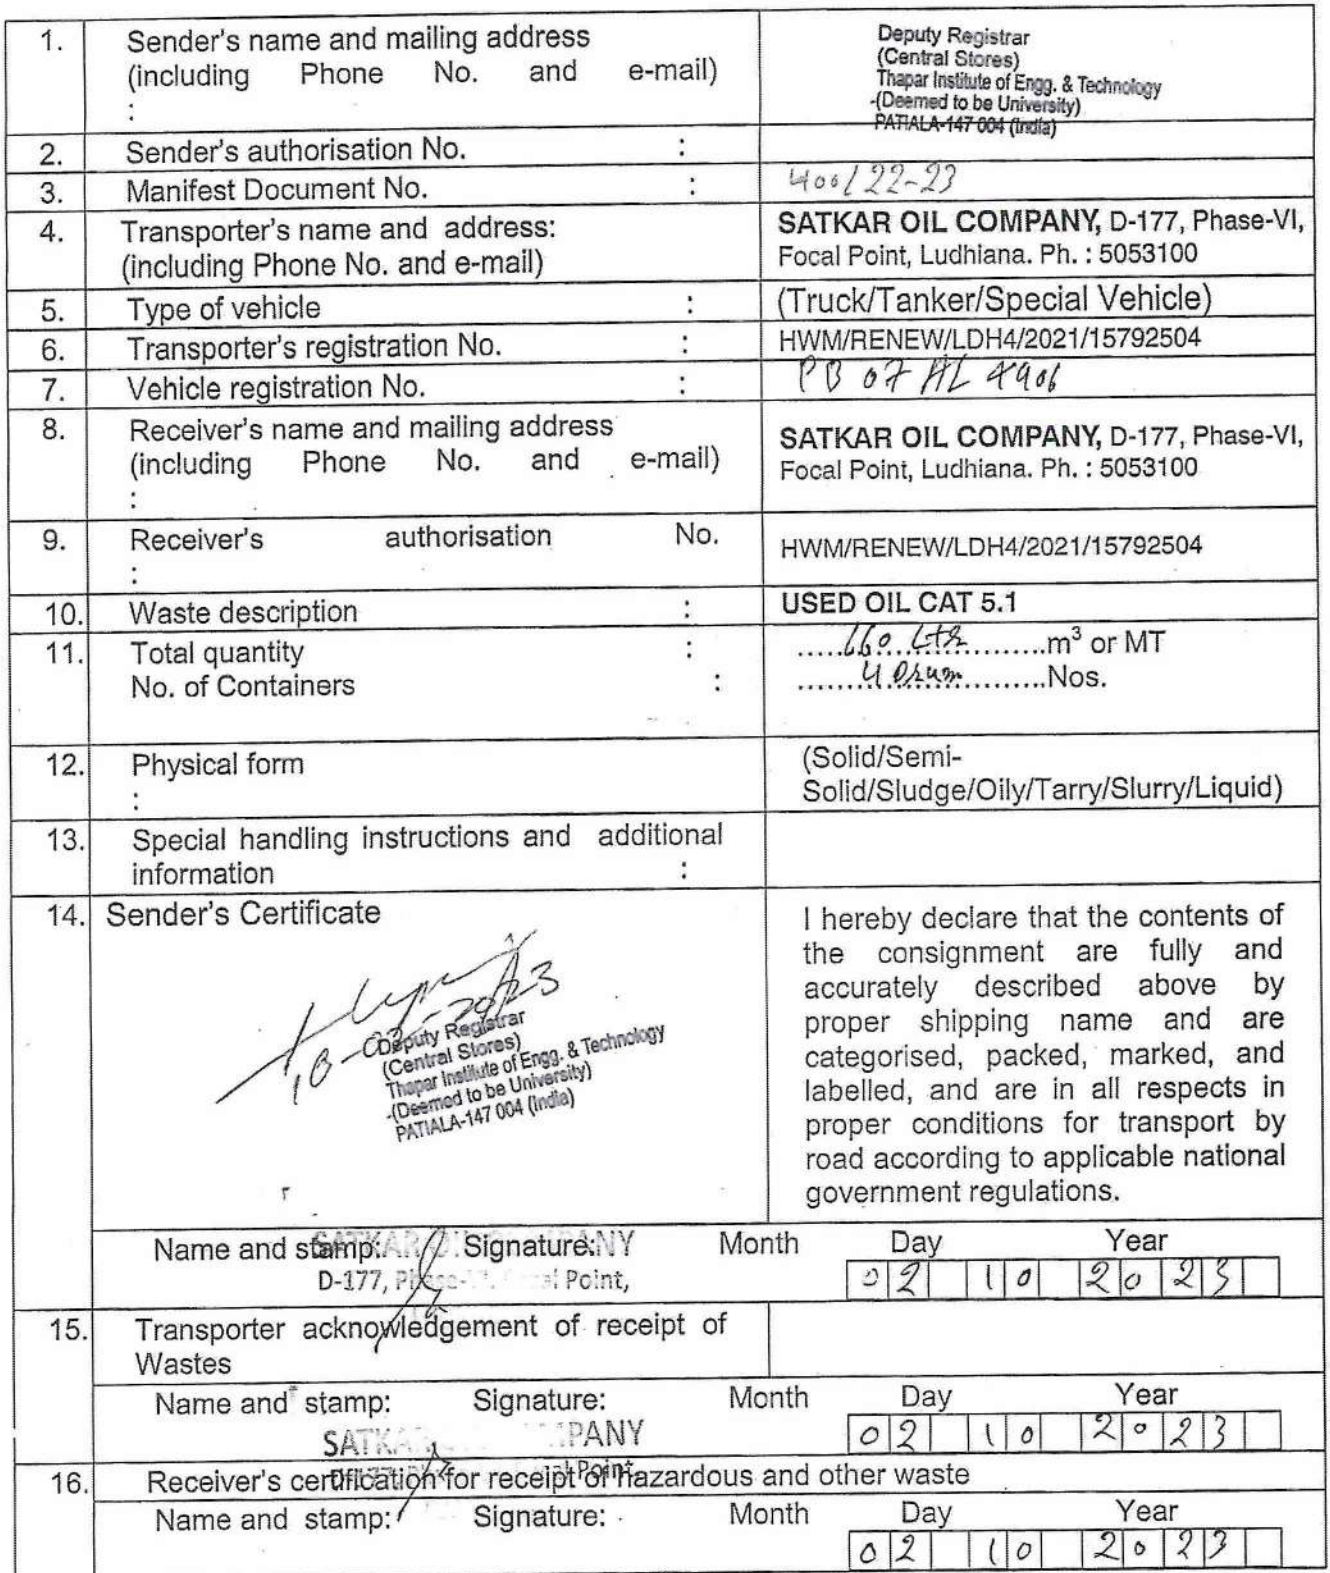 1. Sender's name and mailing address
(including Phone No. and e-mail)
:
Deputy Registrar
(Central Stores)
Thapar Institute of Engg. & Technology
-(Deemed to be University)
PATIALA-147 004 (India)
2. Sender's authorisation No. :
3. Manifest Document No. : 400/22-23
4. Transporter's name and address:
(including Phone No. and e-mail)
SATKAR OIL COMPANY, D-177, Phase-VI,
Focal Point, Ludhiana. Ph. : 5053100
5. Type of vehicle : (Truck/Tanker/Special Vehicle)
6. Transporter's registration No. : HWM/RENEW/LDH4/2021/15792504
7. Vehicle registration No. : PB 07 AL 4906
8. Receiver's name and mailing address
(including Phone No. and e-mail)
:
SATKAR OIL COMPANY, D-177, Phase-VI,
Focal Point, Ludhiana. Ph. : 5053100
9. Receiver's authorisation No.
:
HWM/RENEW/LDH4/2021/15792504
10. Waste description : USED OIL CAT 5.1
11. Total quantity : .....660 Ltr..........m³ or MT
No. of Containers : .........4 Drum...........Nos.
12. Physical form
:
(Solid/Semi-
Solid/Sludge/Oily/Tarry/Slurry/Liquid)
13. Special handling instructions and additional
information :
14. Sender's Certificate
Deputy Registrar
(Central Stores)
Thapar Institute of Engg. & Technology
-(Deemed to be University)
PATIALA-147 004 (India)
I hereby declare that the contents of
the consignment are fully and
accurately described above by
proper shipping name and are
categorised, packed, marked, and
labelled, and are in all respects in
proper conditions for transport by
road according to applicable national
government regulations.
Name and stamp: Signature: Month Day Year
SATKAR OIL COMPANY
D-177, Phase-VI, Focal Point,
02 10 2023
15. Transporter acknowledgement of receipt of
Wastes
Name and stamp: Signature: Month Day Year
SATKAR COMPANY
02 10 2023
16. Receiver's certification for receipt of hazardous and other waste
Name and stamp: Signature: Month Day Year
02 10 2023